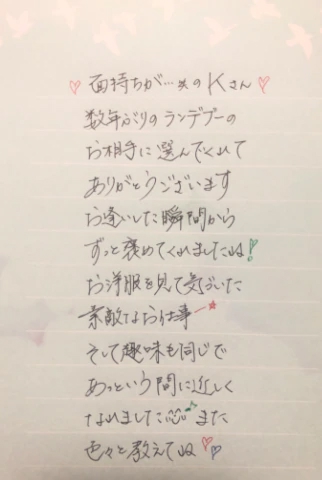 ♡面持ちが…♯のKさん♡
数年がりのランデブーの
お相手に選んでくれて
ありがとうございます
お逢いした瞬間から
ずっと褒めてくれましたね!
お洋服を見て気づいた
素敵なお仕事ー★
そして趣味も同じで
あっという間に近しく
なれました また
色々と教えてね♡♡